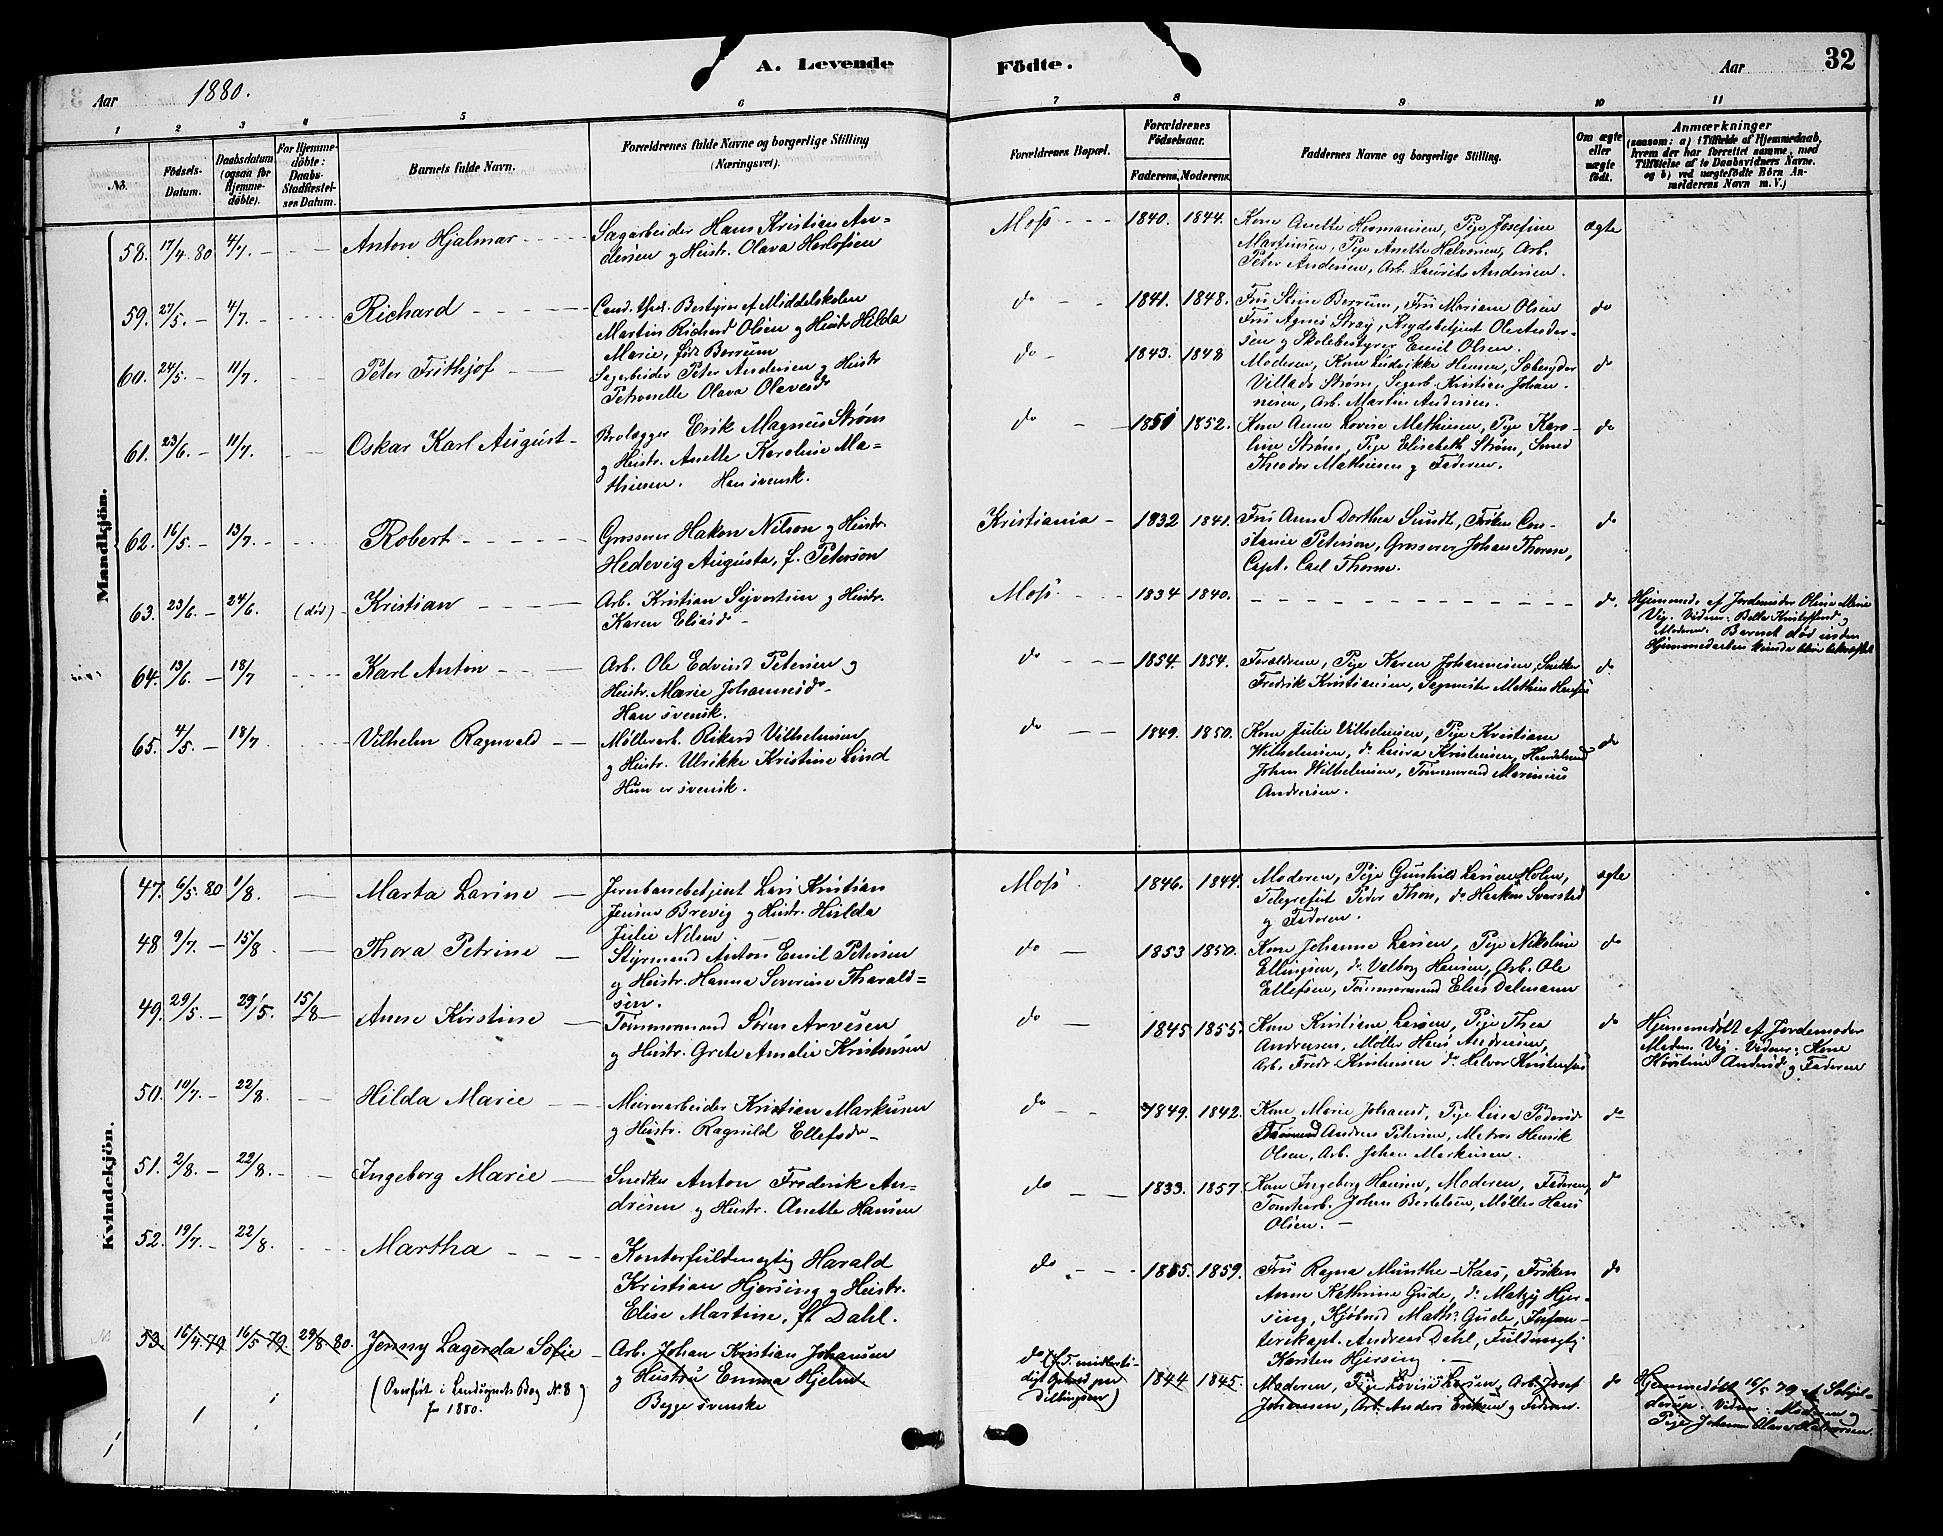 A. Levende Födte.
32
Aar 1880.
Aar
1 2 3 4 5 6 7 8 9 10 11
No.
Födsels-
Datum.
Daabsdatum
(ogsaa for
Hjemme-
døbte).
For Hjemme-
döbte:
Daabs-
Stadfæstel-
ses Datum.
Barnets fulde Navn.
Forældrenes fulde Navne og borgerlige Stilling
(Næringsvei).
Forældrenes Bopæl.
Forældrenes
Födselsaar.
Faderens. Moderens.
Faddernes Navne og borgerlige Stilling.
Om ægte
eller
uægte
født.
Anmærkninger
(saasom: a) i Tilfælde af Hjemmedaab,
hvem der har forrettet samme, med
Tilföielse af to Daabsvidners Navne,
og b) ved uægtefödte Börn An-
melderens Navn m. V.)
Mandkjön.
58. 17/4 80 4/7. Anton Hjalmar
Sagarbeider Hans Kristian An-
dersen og Hustr. Olava Herlofsen
Moss 1840. 1844.
Kone Anette Hermansen, Pige Josefine
Martinsen, Pige Anette Halvorsen, Arb.
Peter Andersen, Arb. Laurits Andersen.
ægte
59. 27/5. 4/7. Richard
Cand. theol. Bestyrer af Middelskolen
Martin Richard Olsen og Hustr. Hilda
Marie, født Borrum
do 1841. 1848.
Fru Stine Borrum, Fru Mariane Olsen
Fru Agnes Stray, Krydsbetjent Ole Ander-
sen og Skolebestyrer Emil Olsen.
do
60. 24/5. 11/7. Peter Frithjof
Sagarbeider Peter Andersen og Hustr
Petronelle Olava Olavesd
do 1843. 1848
Moderen, Kone Ludvikke Hansen, Sæbesyder
Villads Strøm, Sagarb. Kristian Johan-
nesen, Arb. Martin Andersen.
do
61. 23/6. 11/7. Oskar Karl August
Brolægger Erik Magnus Strøm
og Hustr. Anette Karoline Ma-
thiesen. Han svensk.
do 1851 1852.
Kone Anne Lovise Mathiesen, Pige Karo-
line Strøm, Pige Elisabeth Strøm, Smed
Theodor Mathiesen og Faderen.
do
62. 16/5. 13/7. Robert
Grosserer Hakon Nilson og Hustr.
Hedevig Augusta, f. Peterson
Kristiania 1832 1841.
Fru Anna Dorthea Sundt, Frøken Con-
stance Peterson, Grosserer Johan Thorne,
Capt. Carl Thorne.
do
63. 23/6. 24/6. (død) Kristian
Arb. Kristian Sivertsen og Hustr.
Karen Eliasd
Moss. 1834 1840.
do.
Hjemmed. af Jordemoder Oline Marie
Vig. Vidner: Kristoffersd og
Moderen. Barnet død inden
Hjemmedaaben kunde blive bekræftet
64. 13/6. 18/7 Karl Anton
Arb. Ole Edvind Petersen og
Hustr. Marie Johannesd.
Han svensk.
do 1854. 1854.
Forældrene, Pige Karen Johannesen, Snekker
Fredrik Kristiansen, Sagmester Mathias Hansen
do
65. 4/5. 18/7 Vilhelm Ragnvald
Møllerarb. Rikard Vilhelmsen,
og Hustr. Ulrikke Kristine Lind
Hun er svensk.
do 1849. 1850.
Kone Julie Vilhelmsen, Pige Kristiane
Wilhelmsen, do Laura Kristensen, Handelsmd
Johan Wilhelmsen, Tømmermand Marinius
Andersen.
do
Kvindekjön.
47. 6/5. 80 1/8. Marta Larine
Jernbanebetjent Lars Kristian
Jensen Brevig og Hustr. Hulda
Julie Nilsen.
Moss. 1846. 1844.
Moderen, Pige Gunhild Larsen Holm,
Telegrafist Peder Thon, do Haakon Svarstad
og Faderen.
ægte
48. 9/7. 15/8 Thora Petrine
Styrmand Anton Emil Petersen
og Hustr. Hanna Severine Tharald-
sen.
do 1853 1850.
Kone Johanne Larsen, Pige Nikoline
Ellingsen, do Valborg Hansen, Arb. Ole
Ellefsen, Tømmermand Elias Dalmann
do
49. 29/5. 29/5. 15/8 Anne Kirstine
Tømmermand Søren Arvesen
og Hustr. Grete Amalie Kristensen
do 1845 1855.
Kone Kristiane Larsen, Pige Thea
Andersen, Møller Hans Andersen,
Arb. Fredr. Kristensen do Halvor Kristensen
do
Hjemmedøbt af Jordemoder
Madm. Vig. Vidner: Kone
Kirstine Andersd og Faderen
50. 10/7. 22/8. Hilda Marie
Murerarbeider Kristian Markusen
og Hustr. Ragnild Ellefsdr
do 1849. 1842.
Kone Marie Johansd, Pige Lina Pedersd
Tømmermd Andreas Petersen, Matros Henrik
Olsen, Arb. Johan Markusen.
do
51. 2/8. 22/8. Ingeborg Marie
Snedker Anton Frederik An-
dresen og Hustr. Anette Hansen
do 1833. 1857.
Kone Ingeborg Hansen, Moderen, Faderen,
Tomtearb. Johan Bertelsen, Møller Hans
Olsen.
do
52. 19/7. 22/8. Martha
Kontorfuldmægtig Harald
Kristian Hjersing og Hustr.
Elise Martine, f. Dahl.
do 1855. 1859.
Fru Ragna Munthe-Kaas, Frøken
Anne Kathrine Gude, do Matzy Hjer-
sing, Kjøbmd Maths. Gude, Infan-
terikapt. Andreas Dahl, Fuldmægtig
Karsten Hjersing.
do
53. 16/4 79 16/5 79. 29/8 80. Jenny Lagerda Sofie
(Overført i Landsognets Bog No. 8
for 1880.)
Arb. Johan Kristian Johansen
og Hustru Emma Hjelm.
Begge svenske
do (f. T. midlerti-
digt Ophold paa
Dillingøen)
1844 1845.
Moderen, Pige Lovise Larsen, Arb. Josef
Johansen, Arb. Anders Eriksen og Faderen.
do
Hjemmedøbt 16/5 79 af
Vidner: Moderen og
Pige Johanne Olava Halvorsen.